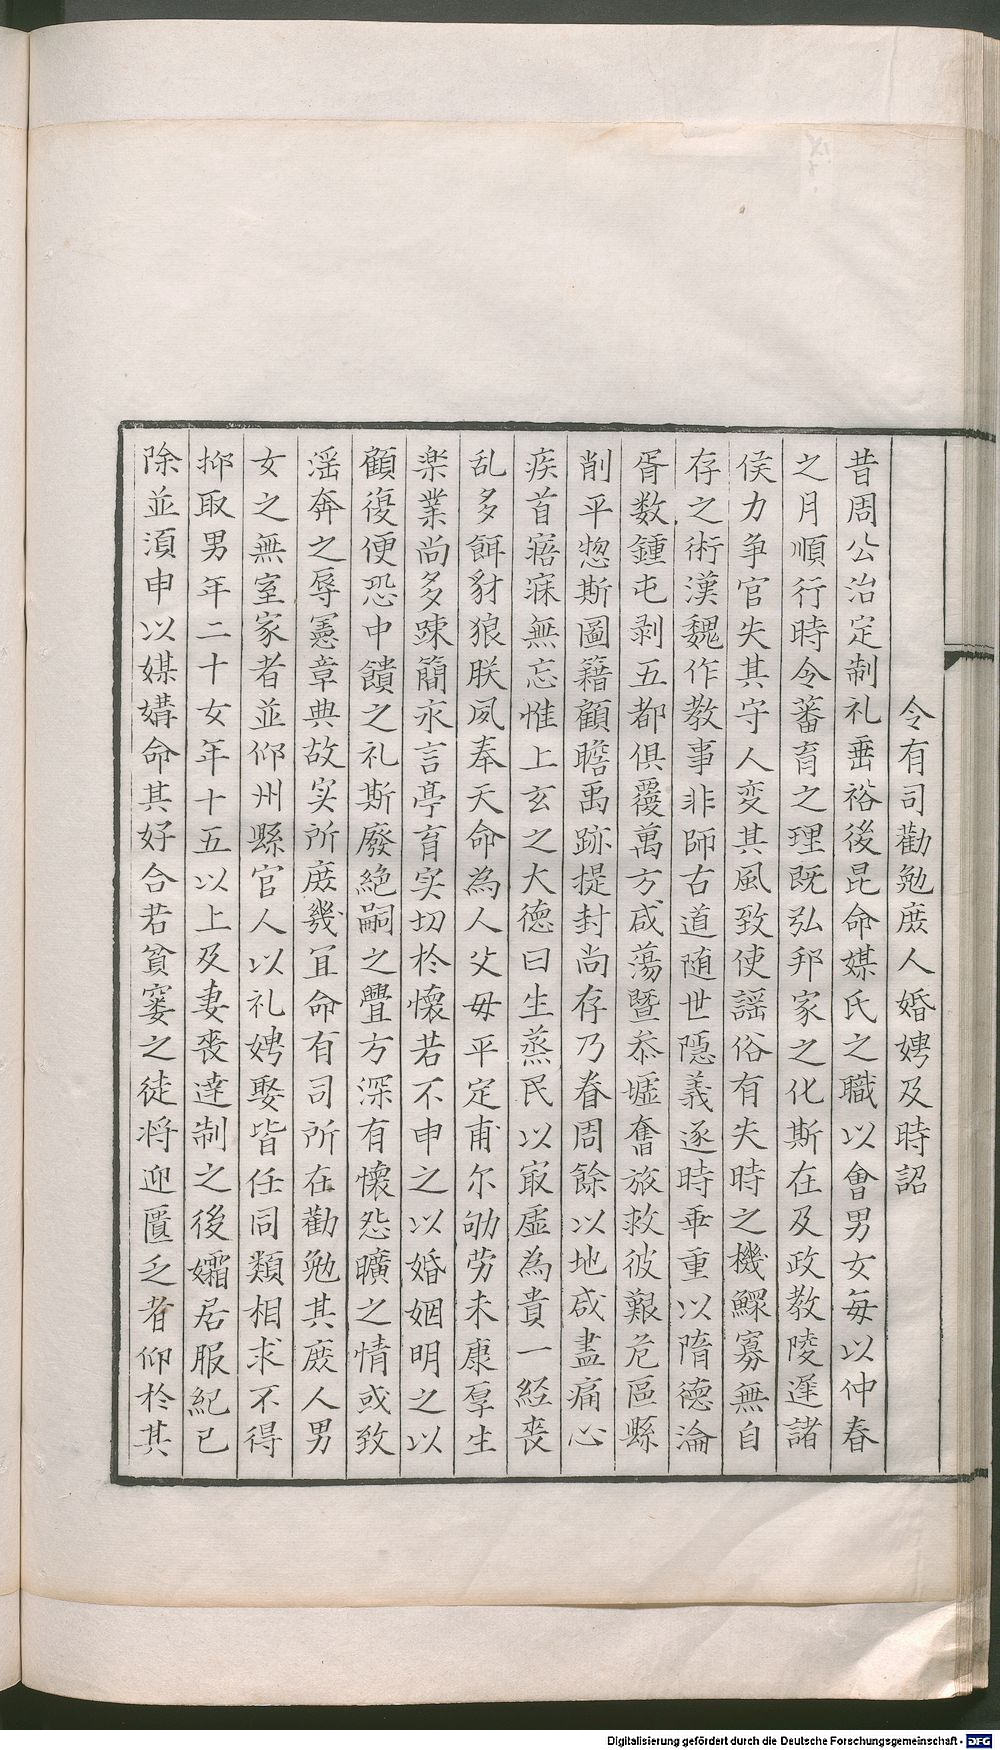 令有司勸勉庶人婚娉及時詔
昔周公治定制礼垂裕後昆命媒氏之職以會男女每以仲春
之月順行時令蕃育之理既弘邦家之化斯在及政教陵遲諸
侯力争官失其守人変其風致使謡俗有失時之機鰥寡無自
存之術漢魏作教事非師古道随世隠義逐時乖重以隋德淪
胥数鍾屯剥五都俱覆萬方咸蕩暨忝墟奮旅救彼艱危區縣
削平惣斯圖籍顧瞻禹跡提封尚存乃眷周餘以地咸盡痛心
疾首寤寐無忘惟上玄之大德曰生蒸民以㝡虚為貴一経丧
乱多餌豺狼朕夙奉天命為人父毋平定甫尓劬劳未康厚生
楽業尚多踈簡永言亭育实切於懐若不申之以婚姻明之以
顧復便恐中饋之礼斯廢絶嗣之舋方深有懐怨曠之情或致
滛奔之辱憲章典故实所庶幾冝命有司所在勸勉其庶人男
女之無室家者並仰州縣官人以礼娉娶皆任同類相求不得
抑取男年二十女年十五以上及妻丧逹制之後孀居服紀已
除並湏申以媒媾命其好合若貧窶之徒将迎匱乏者仰於其
Digitalisierung gefördert durch die Deutsche Forschungsgemeinschaft - DFG